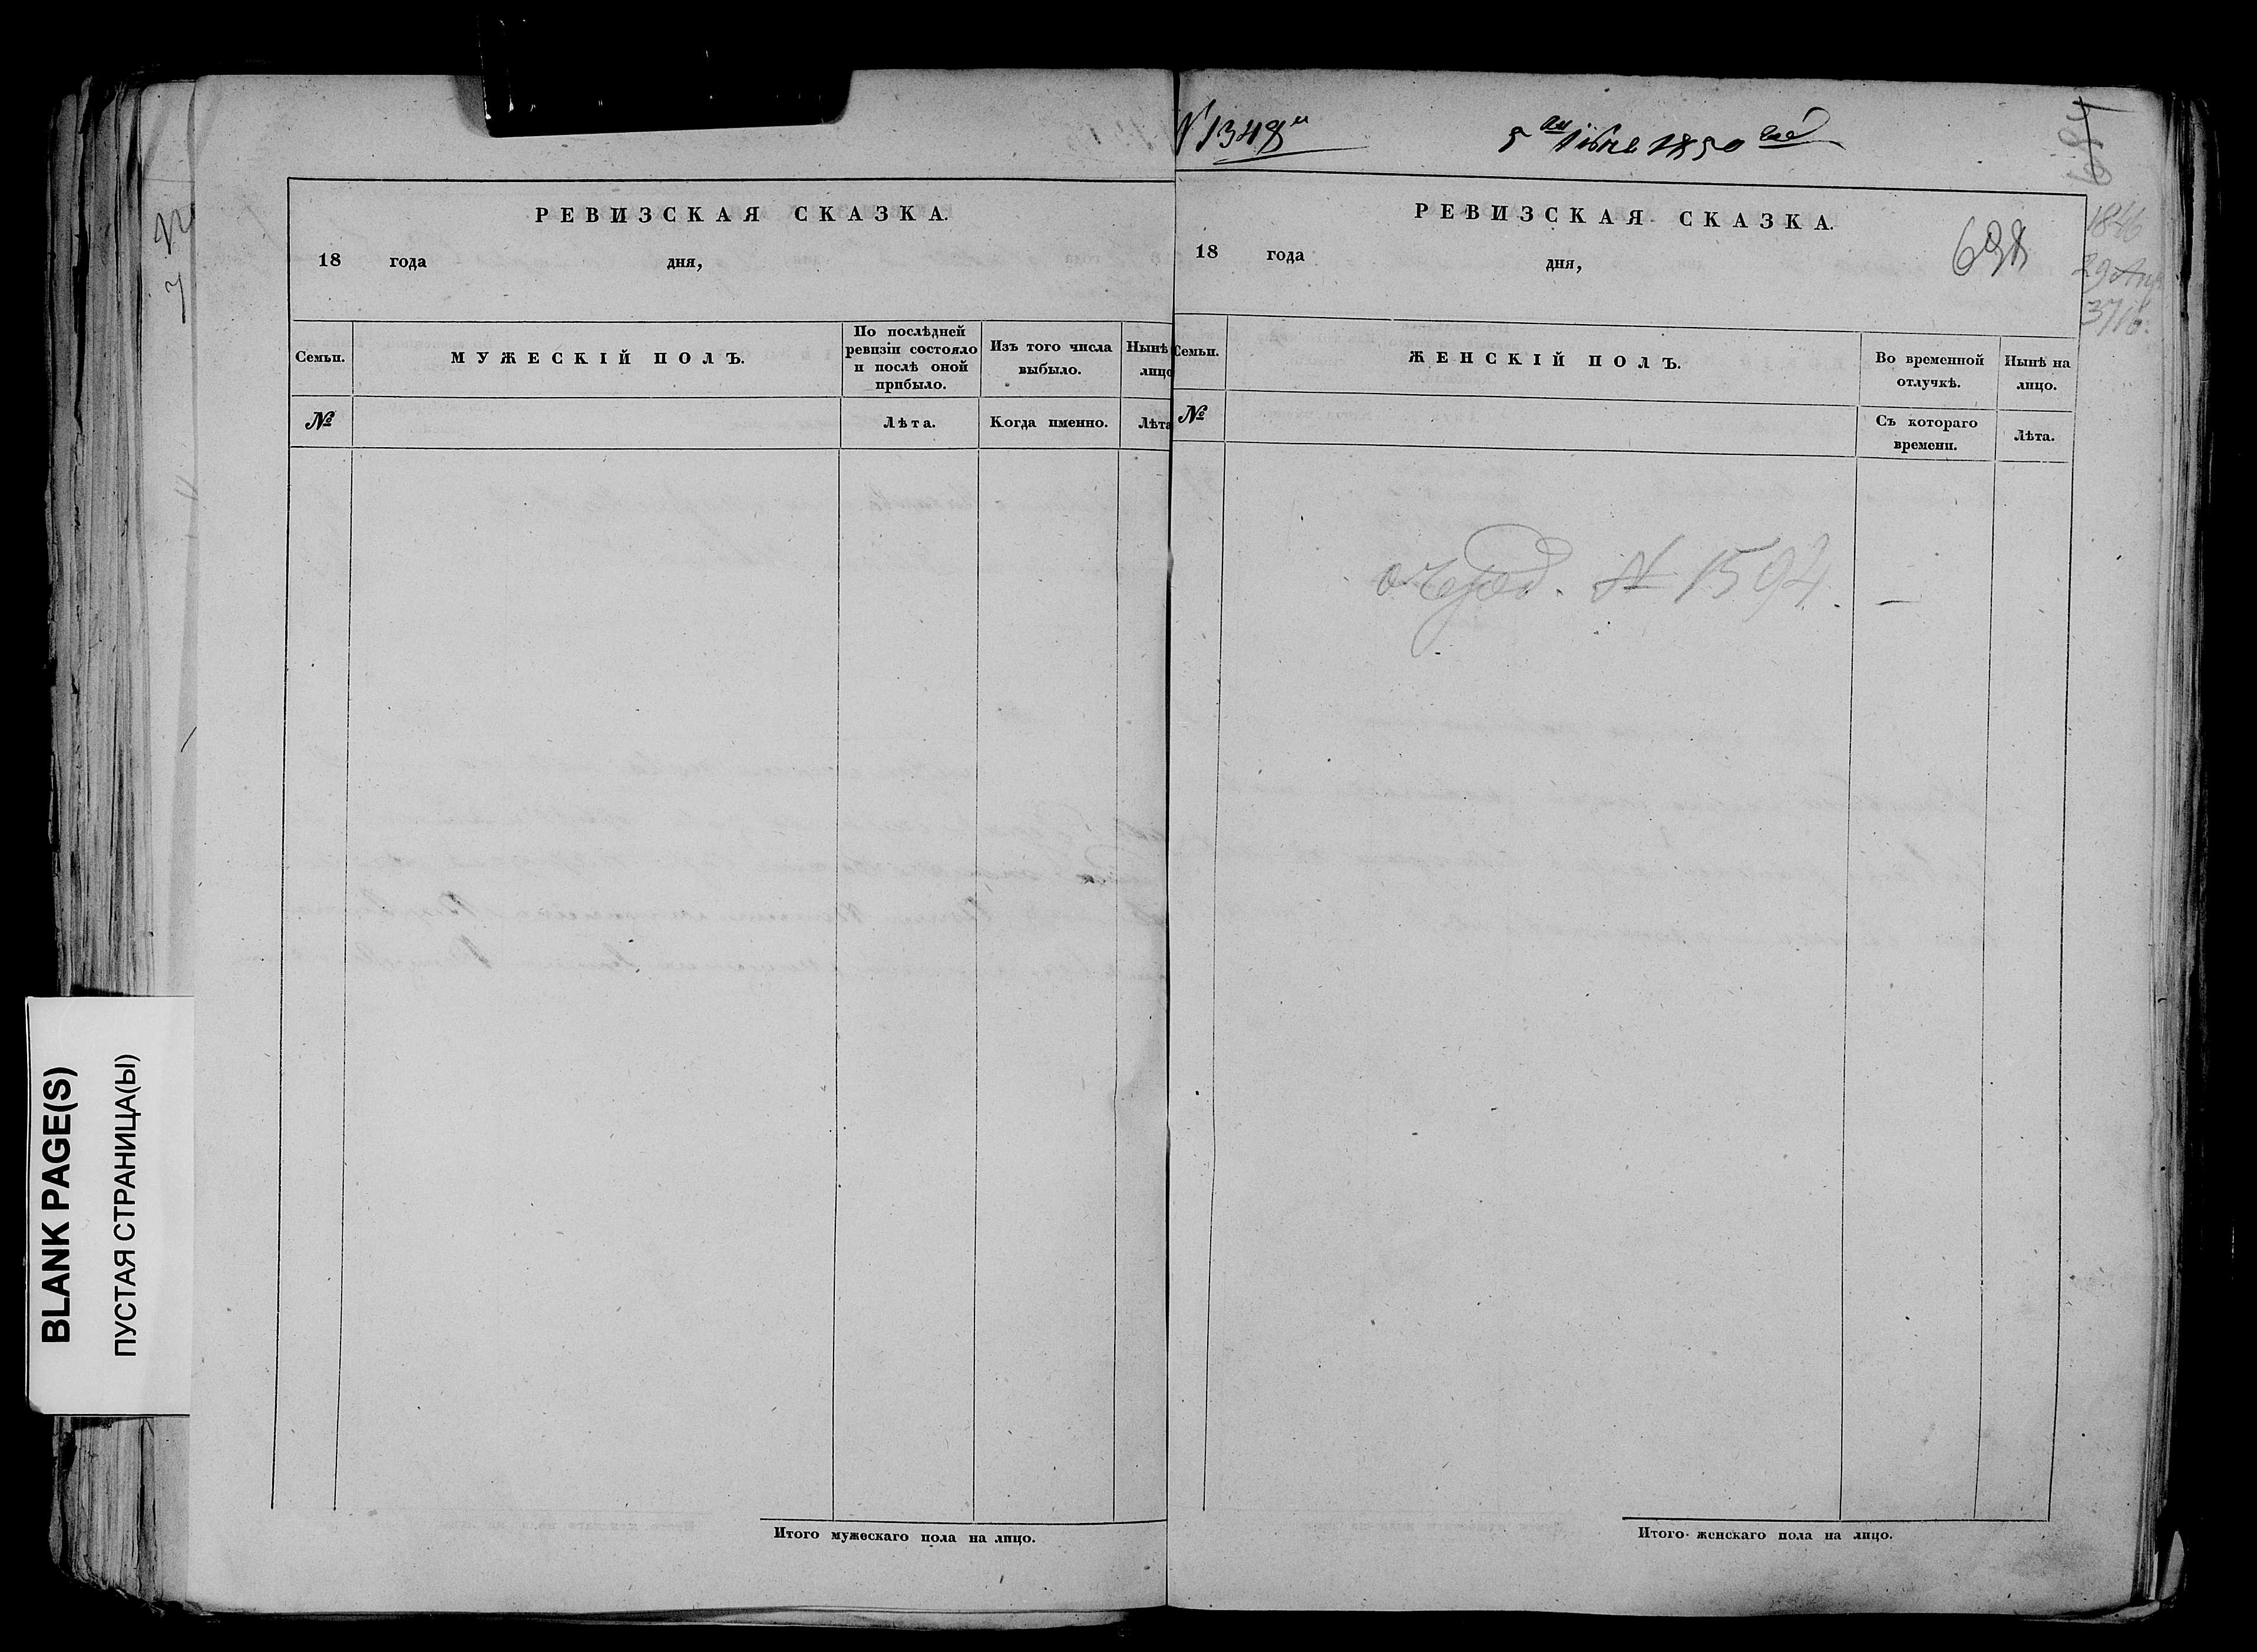 РЕВИЗСКАЯ СКАЗКА.
18 года дня,
Семьи.
МУЖЕСКІЙ ПОЛЪ.
По послѣдней
ревизіи состояло
и послѣ оной
прибыло.
Изъ того числа
выбыло.
Нынѣ
лицо
№
Лѣта.
Когда именно.
Лѣта
Итого мужескаго пола на лицо.
BLANK PAGE(S)
ПУСТАЯ СТРАНИЦА(Ы)
№ 1348
5 1850
684
РЕВИЗСКАЯ СКАЗКА.
18 года дня,
698
1846
29
37
Семьи.
ЖЕНСКІЙ ПОЛЪ.
Во временной
отлучкѣ.
Нынѣ на
лицо.
№
Съ котораго
времени.
Лѣта.
очеред. № 1594. —
Итого женскаго пола на лицо.